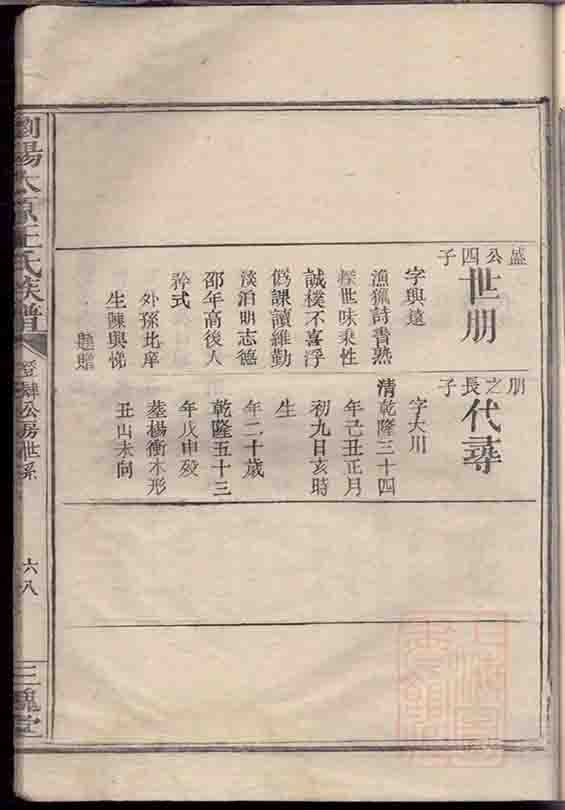 盛公四子
世朋
字興遠
漁獵詩書熟
探世味秉性
誠樸不喜浮
僞課讀維勤
淡泊明志德
邵年高後人
矜式
外孫北庠
生陳興悌
題贈
朋之長子
代尋
字大川
清乾隆三十四
年己丑正月
初九日亥時
生
年二十歲
乾隆五十三
年戊申歿
葬楊衝木形
丑山未向
瀏陽太原王氏族譜
公房世系
六八
三槐堂